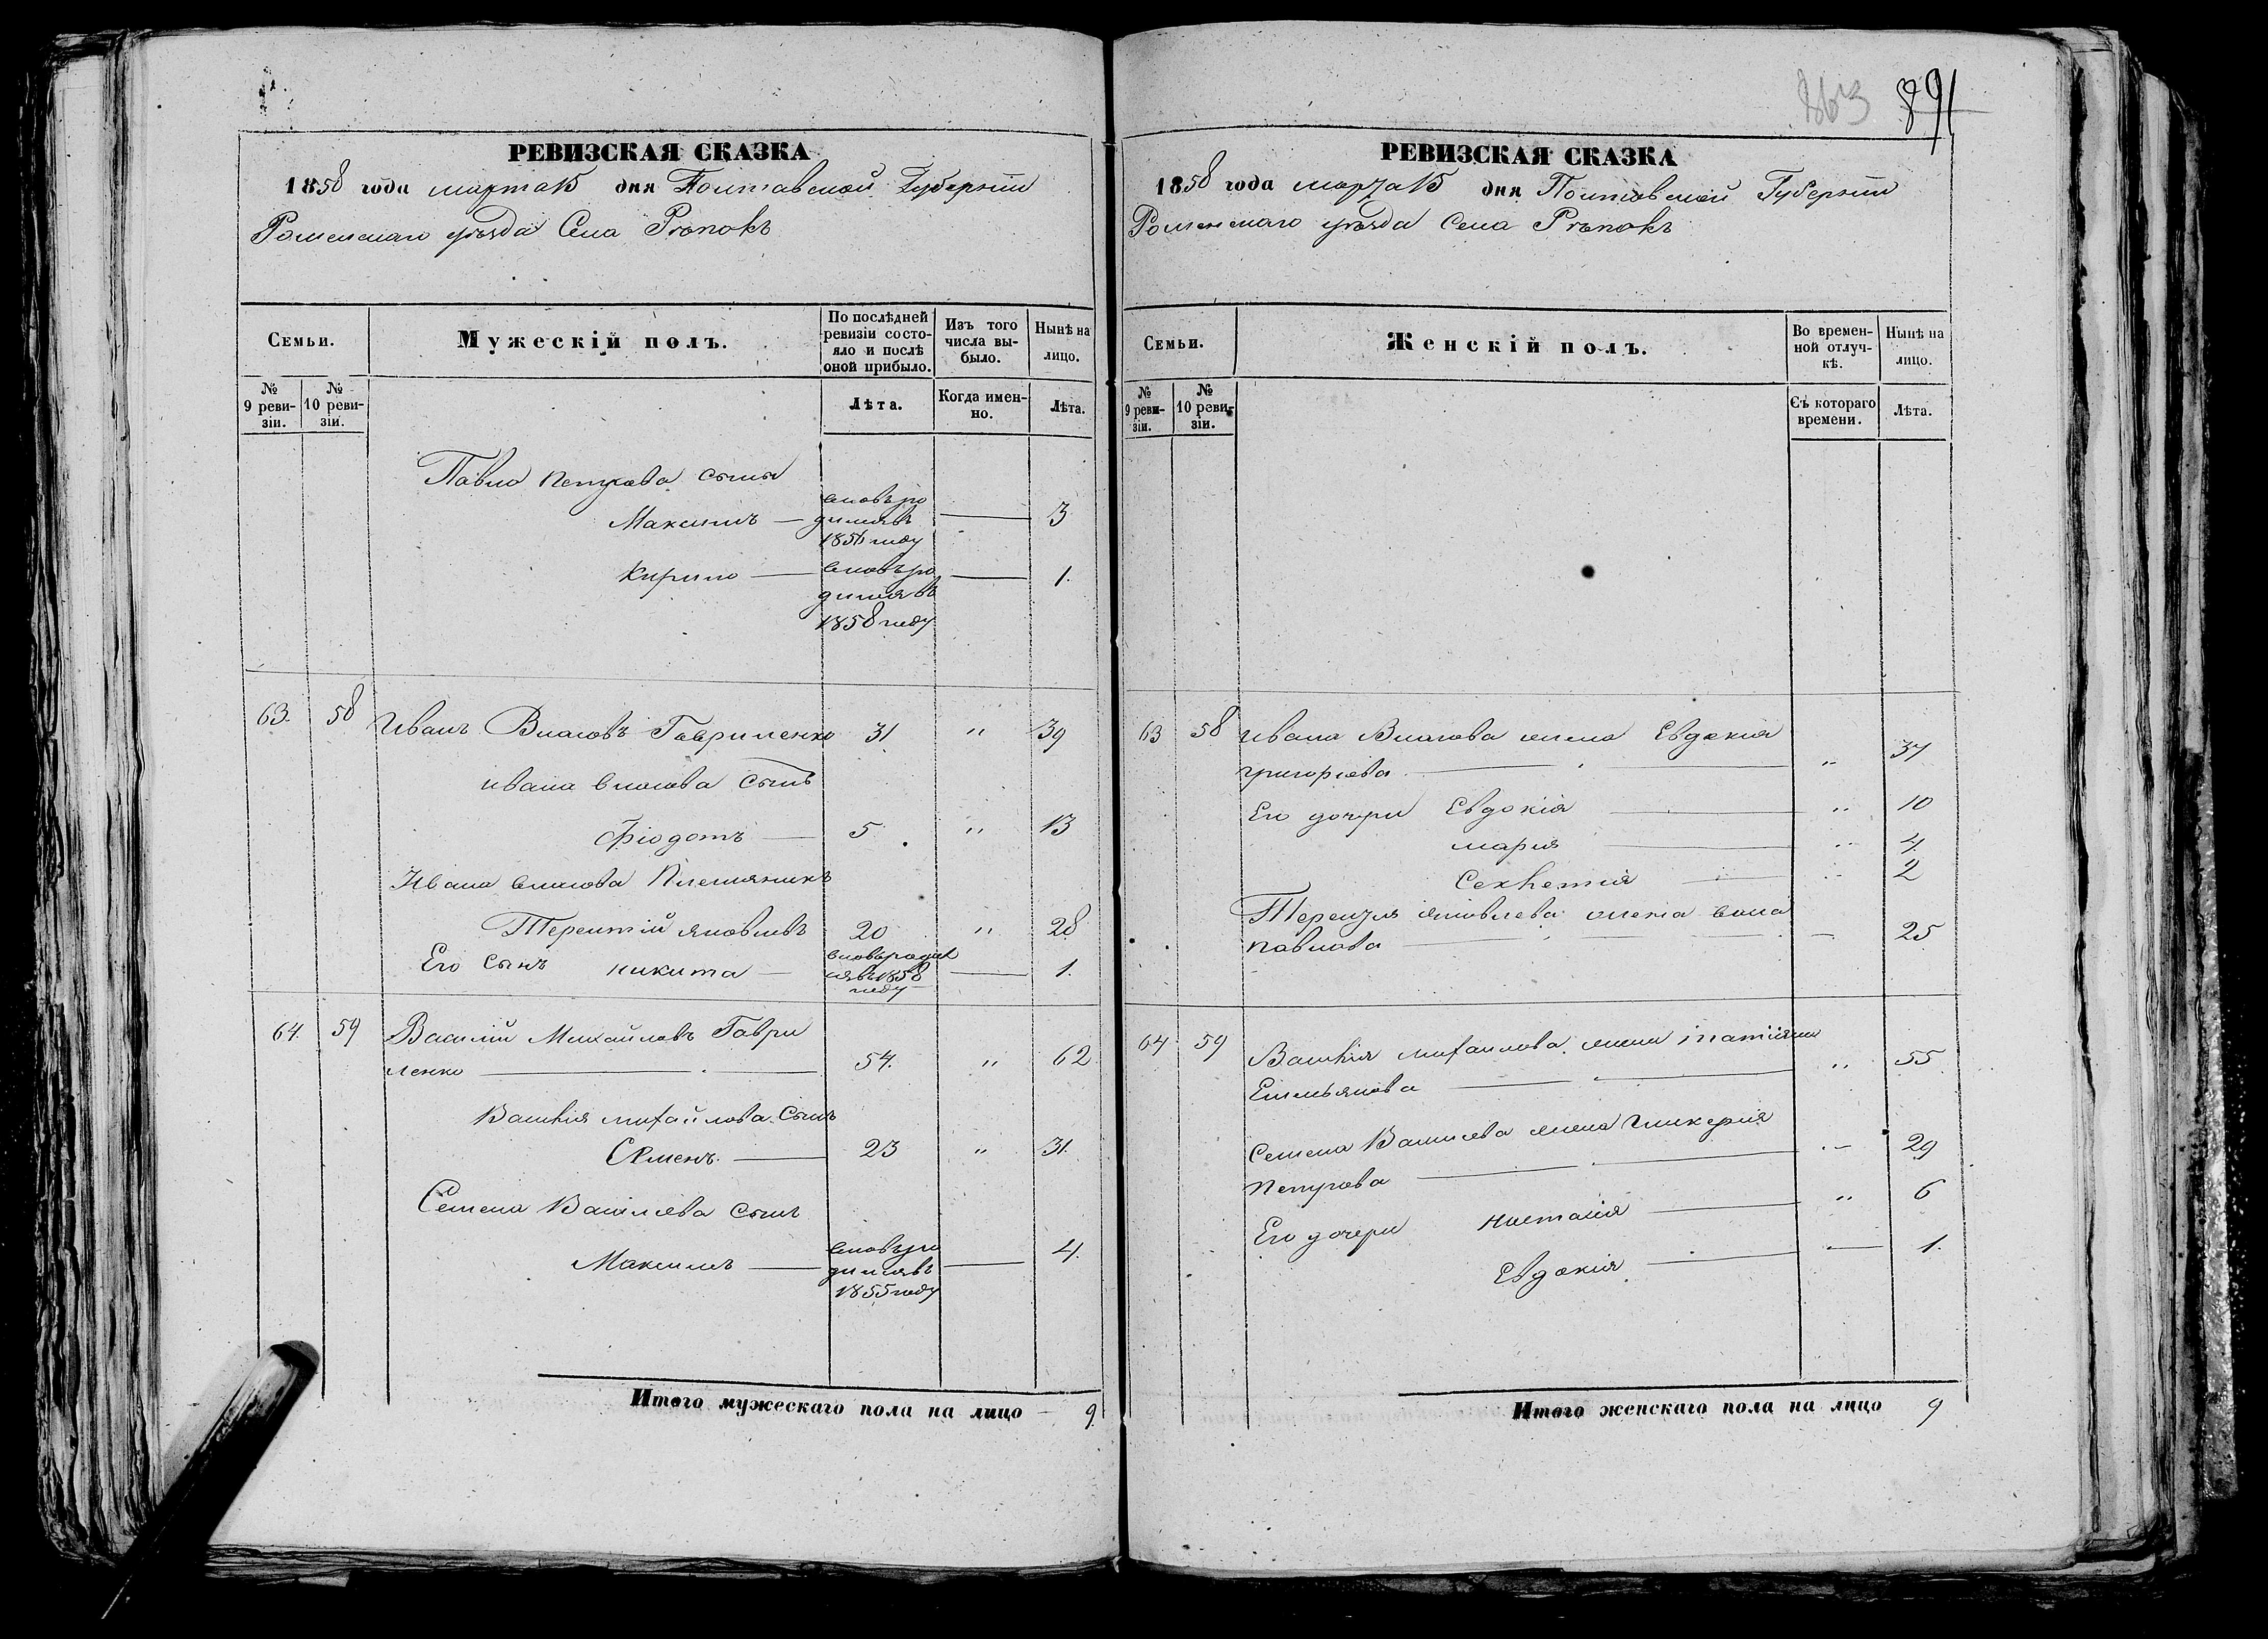 863 891
РЕВИЗСКАЯ СКАЗКА
1858 года марта 15 дня Полтавской Губернии
Роменскаго уѣзда Села Рѣпокъ
Семьи.
Мужескій полъ.
По послѣдней ревизіи состояло и послѣ оной прибыло.
Изъ того числа выбыло.
Нынѣ на лицо.
№ 9 ревизіи.
№ 10 ревизіи.
Лѣта.
Когда именно.
Лѣта.
Павла Петрова сыны
Максимъ — вновь родился въ 1856 году — 3
Кирило — вновь родился въ 1858 году — 1.
63. 58 Иванъ Власовъ Гавриленко 31 " 39
Ивана Власова сынъ
Фіодотъ — 5 " 13
Ивана Власова Племяникъ
Терентій Яковлевъ 20 " 28
Его сынъ Никита — вновь родился въ 1858 году — 1.
64. 59 Василій Михайловъ Гаври
ленко — 54. " 62
Василія Михайлова сынъ
Семенъ. — 23 " 31.
Семена Василіева сынъ
Максимъ — вновь родился въ 1855 году — 4.
Итого мужескаго пола на лицо — 9
РЕВИЗСКАЯ СКАЗКА
1858 года марта 15 дня Полтавской Губернии
Роменскаго уѣзда Села Рѣпокъ
Семьи.
Женскій полъ.
Во временной отлучкѣ.
Нынѣ на лицо.
№ 9 ревизіи.
№ 10 ревизіи.
Съ котораго времени.
Лѣта.
63 58 Ивана Власова жена Евдокія
Григорієва — " 37
Его дочери Евдокія — " 10
Марія — " 4
2
Терентія Яковлева жена
Павлова — 25
64 59 Василія Михайлова жена
Емельянова — " 55
Семена Василіева жена Гликерія
Петрова — 29
Его дочери Настасія — " 6
Евдокія — 1.
Итого женскаго пола на лицо 9